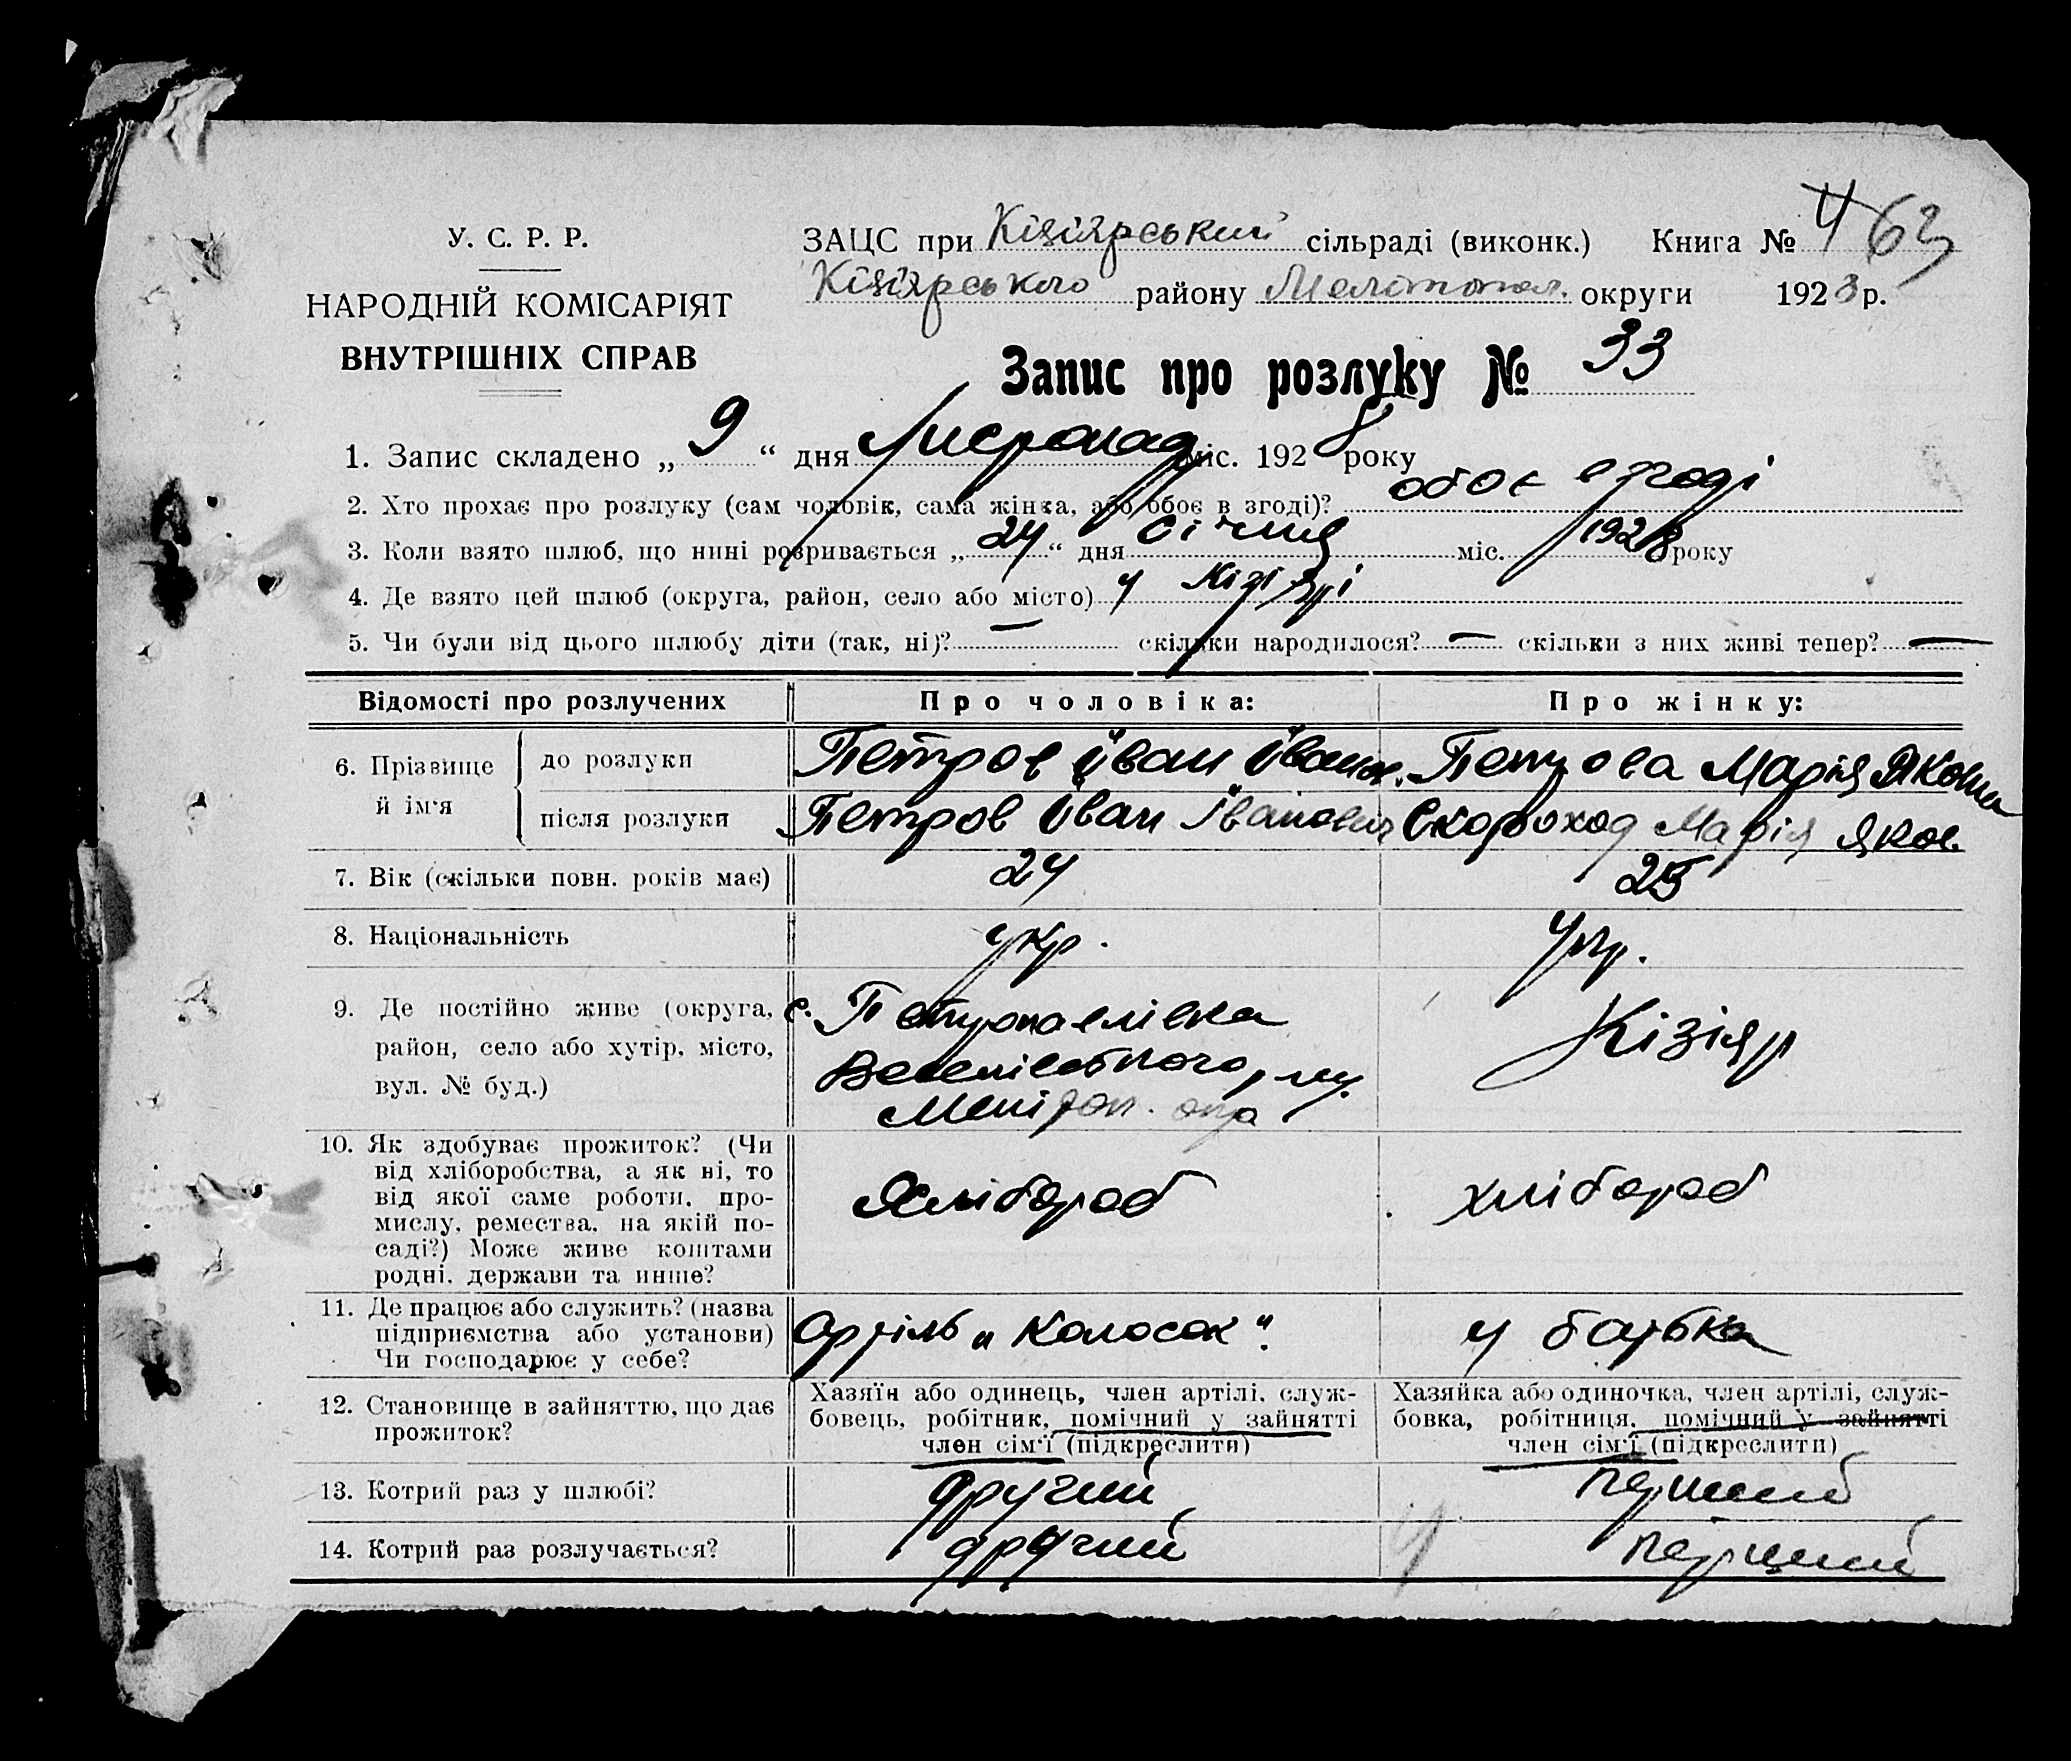 У. С. Р. Р.
НАРОДНІЙ КОМІСАРІЯТ
ВНУТРІШНІХ СПРАВ
ЗАЦС при Кізіярський сільраді (виконк.) Книга № 4 63
Кізіярського району Мелітопол. округи 1928 р.
Запис про розлуку № 33
1. Запис складено „ 9 “ дня Листопад міс. 1928 року
2. Хто прохає про розлуку (сам чоловік, сама жінка, або обоє в згоді)? обоє в згоді
3. Коли взято шлюб, що нині розривається „ 24 “ дня січня міс. 1928 року
4. Де взято цей шлюб (округа, район, село або місто) у Кізіярі
5. Чи були від цього шлюбу діти (так, ні)? — скільки народилося? — скільки з них живі тепер? —
Відомості про розлучених Про чоловіка: Про жінку:
6. Прізвище й ім'я до розлуки Петров Іван Іванов. Петрова Марія Яковна
після розлуки Петров Іван Іванович Скороход Марія Яков.
7. Вік (скільки повн. років має) 24 25
8. Національність укр. укр.
9. Де постійно живе (округа, район, село або хутір, місто, вул. № буд.)
с. Петропавлівка
Мелітоп. окр
Кізіяр
10. Як здобуває прожиток? (Чи
від хліборобства, а як ні, то
від якої саме роботи, про-
мислу, ремества, на якій по-
саді?) Може живе коштами
родні, держави та инше?
Хлібороб хлібороб
11. Де працює або служить? (назва
підприємства або установи)
Чи господарює у себе?
Артіль „Колосок“. у батька
12. Становище в зайняттю, що дає
прожиток?
Хазяїн або одинець, член артілі, служ-
бовець, робітник, помічний у зайнятті
член сім'ї (підкреслити)
Хазяйка або одиночка, член артілі, служ-
бовка, робітниця, помічний у зайнятті
член сім'ї (підкреслити)
13. Котрий раз у шлюбі? другий перший
14. Котрий раз розлучається? другий перший